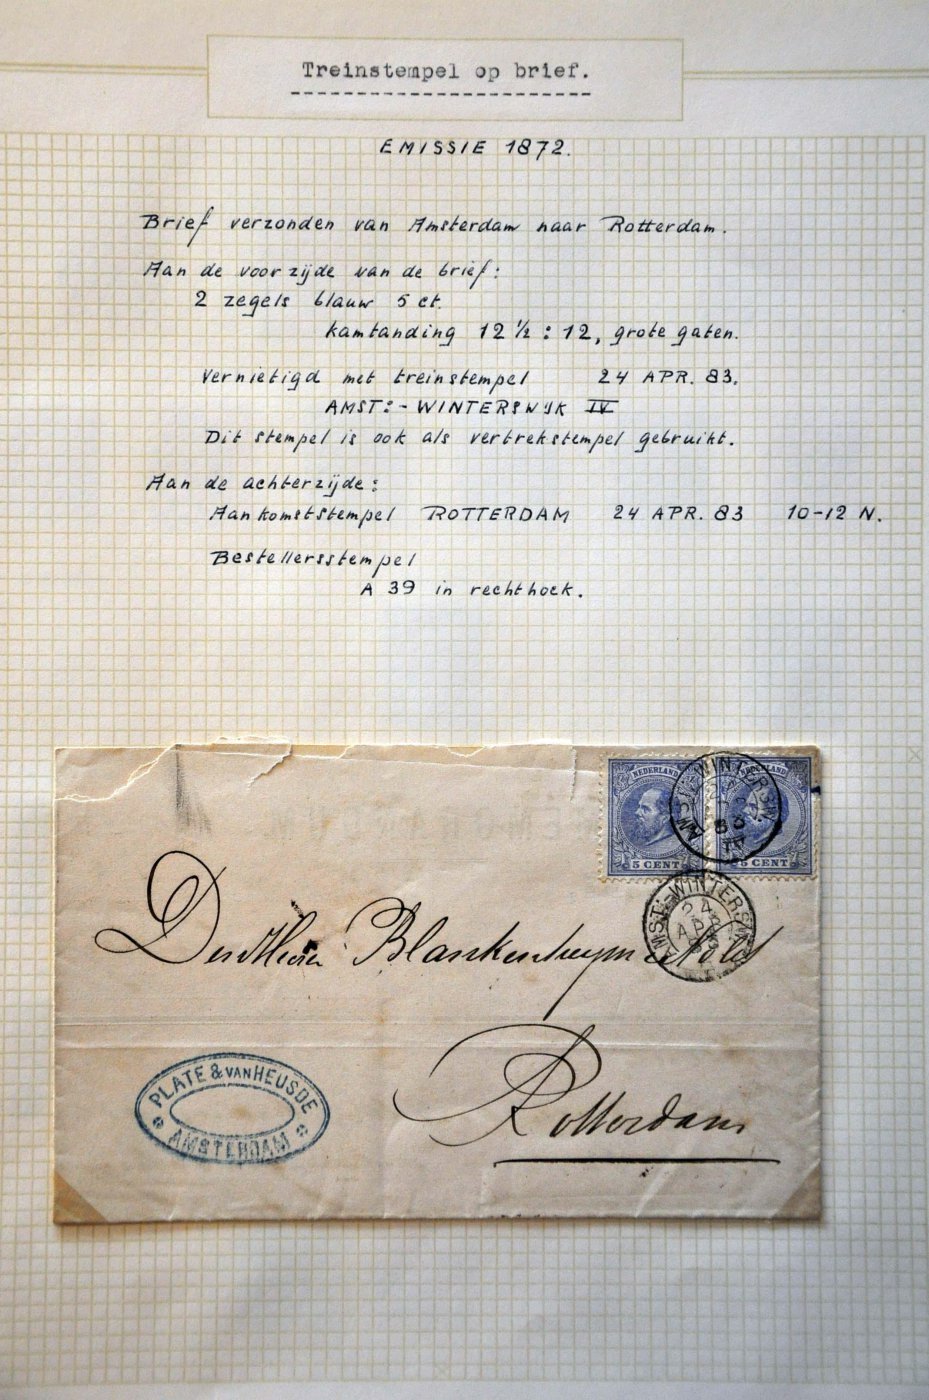 Treinstempel op brief.
EMISSIE 1872.
Brief verzonden van Amsterdam naar Rotterdam.
Aan de voorzijde van de brief:
2 zegels blauw 5 ct.
kamtanding 12 ½ : 12, grote gaten.
Vernietigd met treinstempel 24 APR. 83.
AMST: - WINTERSWIJK IV
Dit stempel is ook als vertrekstempel gebruikt.
Aan de achterzijde:
Aankomststempel ROTTERDAM 24 APR. 83 10-12 N.
Bestellersstempel
A 39 in rechthoek.
NEDERLAND NEDERLAND
5 CENT 5 CENT
AMST:-WINTERSW:
83
IV
AMST:-WINTERSW:
24
APR
Den Heeren Blankenheym & Nolet
Rotterdam
PLATE & VAN HEUSDE
AMSTERDAM